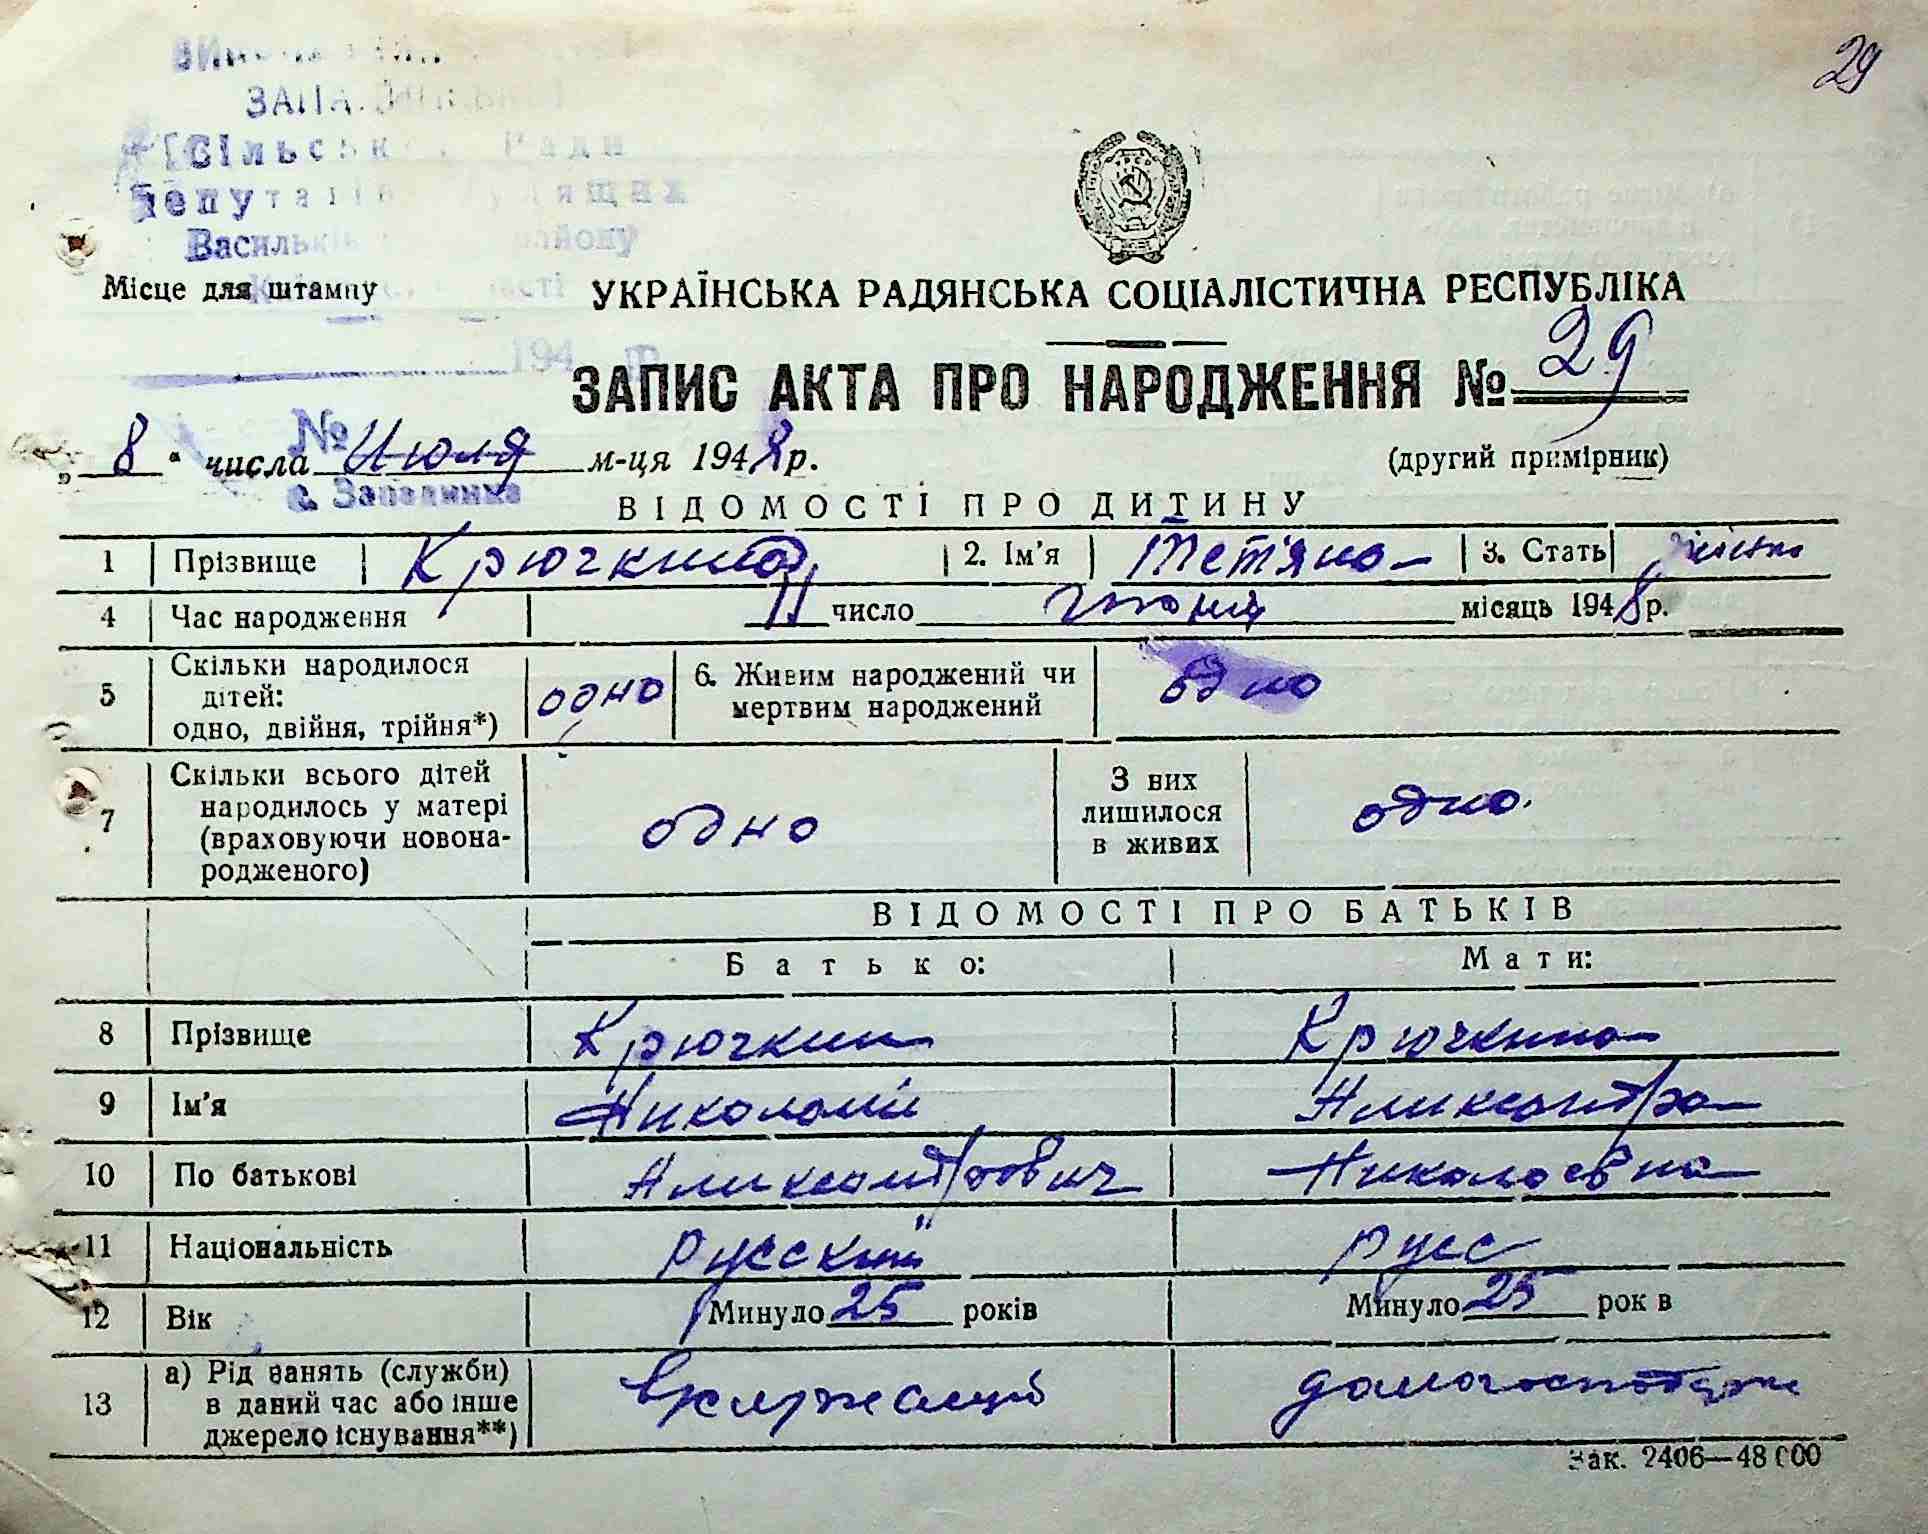 29
Сільської Ради
Депутатів Трудящих
Васильків району
Місце для штампу
УКРАЇНСЬКА РАДЯНСЬКА СОЦІАЛІСТИЧНА РЕСПУБЛІКА
194 р
ЗАПИС АКТА ПРО НАРОДЖЕННЯ № 29
№
„ 8 “ числа Июля м-ця 1948 р.
(другий примірник)
с. Западинка
ВІДОМОСТІ ПРО ДИТИНУ
1 Прізвище Крючкина 2. Ім'я Тет'яна 3. Стать
4 Час народження 11 число июня місяць 1948 р.
5 Скільки народилося дітей: одно, двійня, трійня*) одно 6. Живим народжений чи мертвим народжений одно
7 Скільки всього дітей народилось у матері (враховуючи новонародженого) одно З вих лишилося в живих одно.
ВІДОМОСТІ ПРО БАТЬКІВ
Батько: Мати:
8 Прізвище Крючкин Крючкина
9 Ім'я Николай Аликсантра
10 По батькові Аликсантрович Николаевна
11 Національність Русский русс
12 Вік Минуло 25 років Минуло 25 рок в
13 а) Рід занять (служби) в даний час або інше джерело існування**)
Зак. 2406—48000